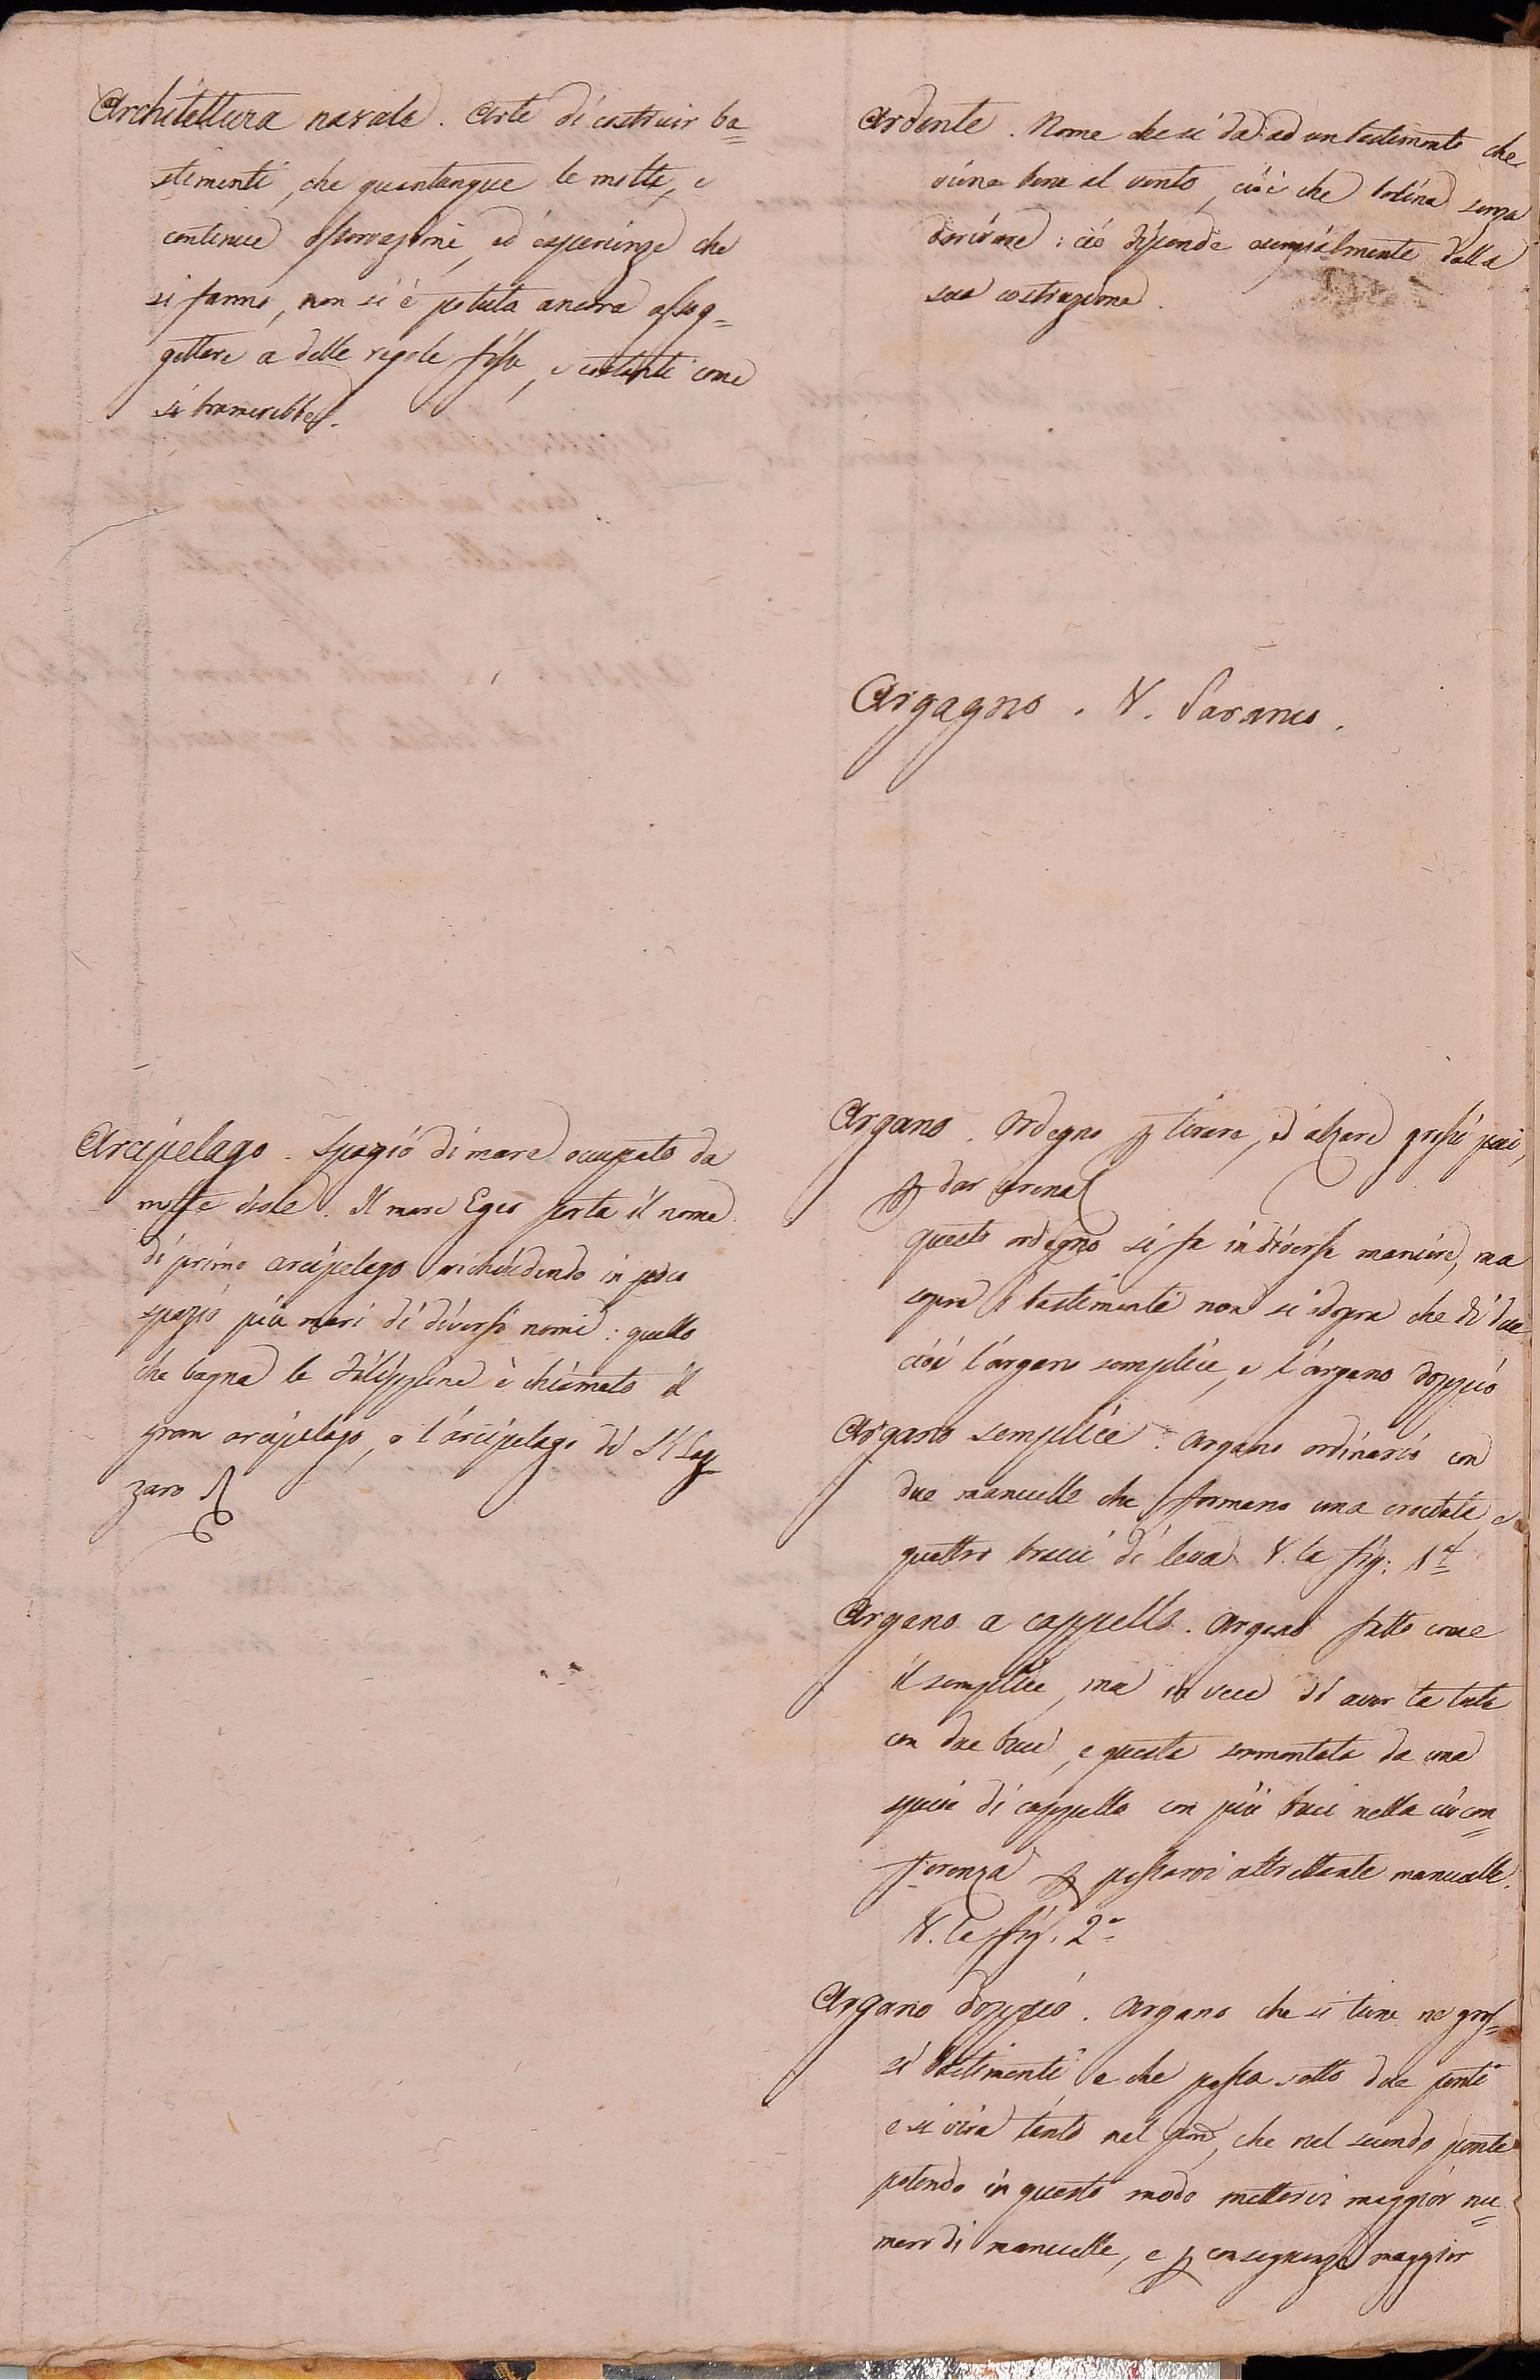 Architettura navale. Arte di costruir ba=
stimenti, che quantunque le molte, e
continue osservazioni, ed esperienze che
si fanno, non si è potuta ancora assog=
gettere a delle regole fisse, e costanti come
si bramerebbe.
Arcipelago. Spazio di mare occupato da
molte isole. Il mare Egeo porta il nome
di primo arcipelago richiudendo in poco
spazio più mari di diversi nomi: quello
che bagna le Filippine è chiamato il
gran arcipelago, o l'arcipelago di S. Laz
zaro
Ardente. Nome che si dà ad un bastimento che
viene bene al vento, cioè che bolina senza
derivare: ciò dipende dalla
sua costruzione.
Argagno. V. Paranco.
Argano. Ordegno p tirare, ed alzare grossi pesi,
p dar carena
questo ordegno si fa in diverse maniere, ma
sopra i bastimenti non si adopra che di due
cioè l'argano semplice, e l'argano doppio
Argano semplice. Argano ordinario con
due manuelle che formano una crociata, e
quattro bracci di leva. V. la fig: 1ª
Argano a cappello. Argano fatto come
il semplice, ma in vece di aver la testa
con due buci, e questa sormontata da una
specie di cappello con più buci nella circon=
ferenza p passarvi altrettante manuelle.
V. la fig. 2ª
Argano doppio. Argano che si tiene ne gros=
si bastimenti, e che passa sotto due ponti
e si vira tanto nel pmo, che nel secondo ponte
potendo in questo modo mettervi maggior nu=
mero di manuelle, e p conseguenza maggior